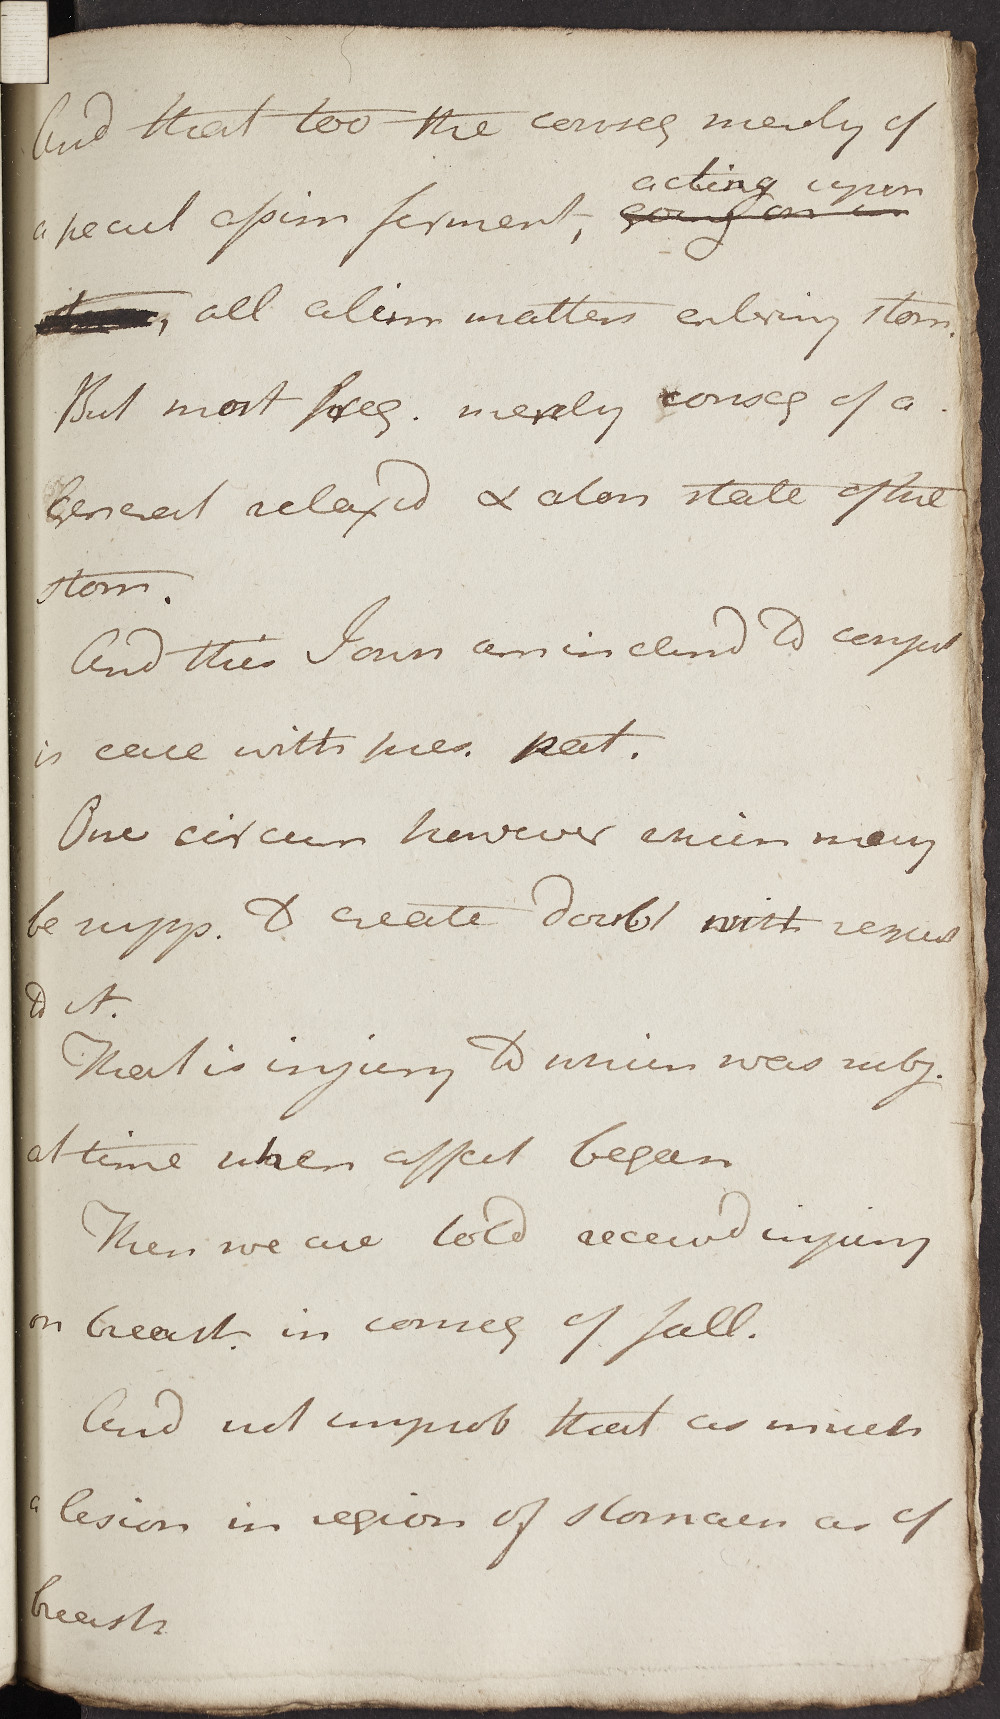 And that too the conseq merely of
acting upon
a pecul assim ferment, going on in
all alim matters entering stom.
But most freq. merely conseq of a
General relax'd & aton state of the
stom.
And this I own am inclind to conject
is case with pres. pat.
One circum however which may
be supp. to create doubt with respect
to it.
That is injury to which was subj.
at time when affect began
Then we are told receivd injury
on breast. in conseq of fall.
And not improb that as much
a lesion in region of stomach as of
breast